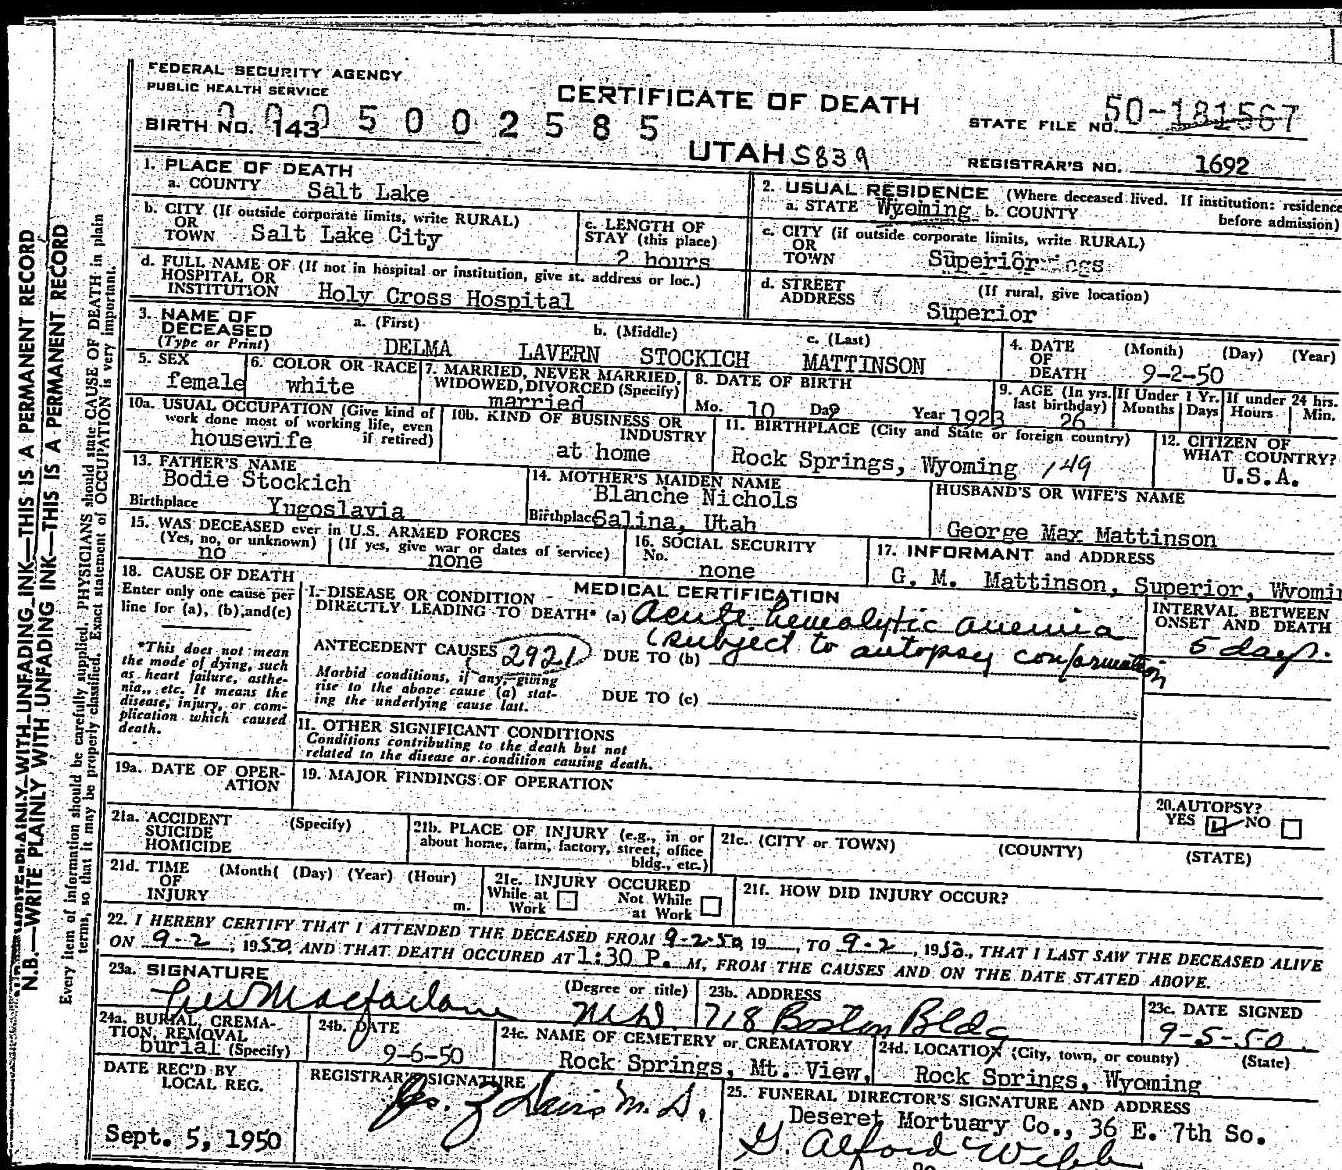 FEDERAL SECURITY AGENCY
PUBLIC HEALTH SERVICE
CERTIFICATE OF DEATH
BIRTH NO. 143 0005002585
STATE FILE NO. 50-181567
UTAH S839
REGISTRAR'S NO. 1692
1. PLACE OF DEATH
a. COUNTY Salt Lake
b. CITY (If outside corporate limits, write RURAL)
OR
TOWN Salt Lake City
c. LENGTH OF
STAY (this place)
2 hours
d. FULL NAME OF (If not in hospital or institution, give st. address or loc.)
HOSPITAL OR
INSTITUTION Holy Cross Hospital
2. USUAL RESIDENCE (Where deceased lived. If institution: residence
before admission)
a. STATE Wyoming b. COUNTY
c. CITY (if outside corporate limits, write RURAL)
OR
TOWN Superior
d. STREET
ADDRESS
(If rural, give location)
Superior
3. NAME OF
DECEASED
(Type or Print)
a. (First) b. (Middle) c. (Last)
DELMA LAVERN STOCKICH MATTINSON
4. DATE
OF
DEATH
(Month) (Day) (Year)
9-2-50
5. SEX
female
6. COLOR OR RACE
white
7. MARRIED, NEVER MARRIED,
WIDOWED, DIVORCED (Specify)
married
8. DATE OF BIRTH
Mo. 10 Day 9 Year 1923
9. AGE (In yrs.
last birthday)
26
If Under 1 Yr.
Months Days
If under 24 hrs.
Hours Min.
10a. USUAL OCCUPATION (Give kind of
work done most of working life, even
if retired)
housewife
10b. KIND OF BUSINESS OR
INDUSTRY
at home
11. BIRTHPLACE (City and State or foreign country)
Rock Springs, Wyoming 149
12. CITIZEN OF
WHAT COUNTRY?
U.S.A.
13. FATHER'S NAME
Bodie Stockich
Birthplace Yugoslavia
14. MOTHER'S MAIDEN NAME
Blanche Nichols
Birthplace Salina, Utah
HUSBAND'S OR WIFE'S NAME
George Max Mattinson
15. WAS DECEASED ever in U.S. ARMED FORCES
(Yes, no, or unknown) (If yes, give war or dates of service)
no none
16. SOCIAL SECURITY
No.
none
17. INFORMANT and ADDRESS
G. M. Mattinson, Superior, Wyomin
18. CAUSE OF DEATH
Enter only one cause per
line for (a), (b), and (c)
*This does not mean
the mode of dying, such
as heart failure, asthe-
nia, etc. It means the
disease, injury, or com-
plication which caused
death.
MEDICAL CERTIFICATION
I. DISEASE OR CONDITION
DIRECTLY LEADING TO DEATH* (a) Acute hemolytic anemia
(subject to autopsy confirmation
ANTECEDENT CAUSES 2921 DUE TO (b)
Morbid conditions, if any, giving
rise to the above cause (a) stat-
ing the underlying cause last.
DUE TO (c)
INTERVAL BETWEEN
ONSET AND DEATH
5 days.
II. OTHER SIGNIFICANT CONDITIONS
Conditions contributing to the death but not
related to the disease or condition causing death.
19a. DATE OF OPER-
ATION
19. MAJOR FINDINGS OF OPERATION
20. AUTOPSY?
YES NO
21a. ACCIDENT
SUICIDE
HOMICIDE
(Specify)
21b. PLACE OF INJURY (e.g., in or
about home, farm, factory, street, office
bldg., etc.)
21c. (CITY or TOWN) (COUNTY) (STATE)
21d. TIME
OF
INJURY
(Month( (Day) (Year) (Hour)
m.
21e. INJURY OCCURED
While at
Work
Not While
at Work
21f. HOW DID INJURY OCCUR?
22. I HEREBY CERTIFY THAT I ATTENDED THE DECEASED FROM 9-2-50, 19, TO 9-2, 1950, THAT I LAST SAW THE DECEASED ALIVE
ON 9-2, 1950, AND THAT DEATH OCCURED AT 1:30 P. M, FROM THE CAUSES AND ON THE DATE STATED ABOVE.
23a. SIGNATURE (Degree or title)
Macfarlane M.D.
23b. ADDRESS
718 Boston Bldg
23c. DATE SIGNED
9-5-50.
24a. BURIAL, CREMA-
TION, REMOVAL
burial (Specify)
24b. DATE
9-6-50
24c. NAME OF CEMETERY or CREMATORY
Rock Springs, Mt. View,
24d. LOCATION (City, town, or county) (State)
Rock Springs, Wyoming
DATE REC'D BY
LOCAL REG.
Sept. 5, 1950
REGISTRAR'S SIGNATURE
Davis M.D.
25. FUNERAL DIRECTOR'S SIGNATURE AND ADDRESS
Deseret Mortuary Co., 36 E. 7th So.
G. Alford Webb
N.B.—WRITE PLAINLY WITH UNFADING INK—THIS IS A PERMANENT RECORD
Every item of information should be carefully supplied. PHYSICIANS should state CAUSE OF DEATH in plain
terms, so that it may be properly classified. Exact statement of OCCUPATION is very important.